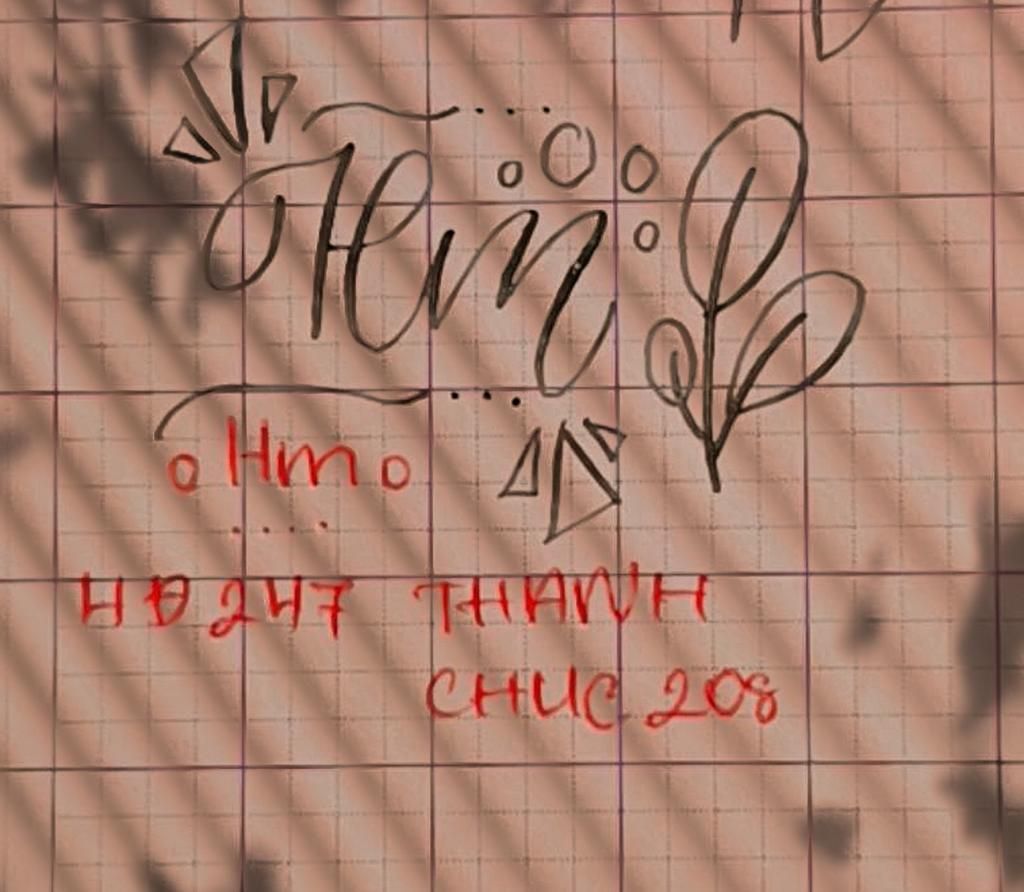 Hm
Hm
HĐ 247 THANH
CHUC 208